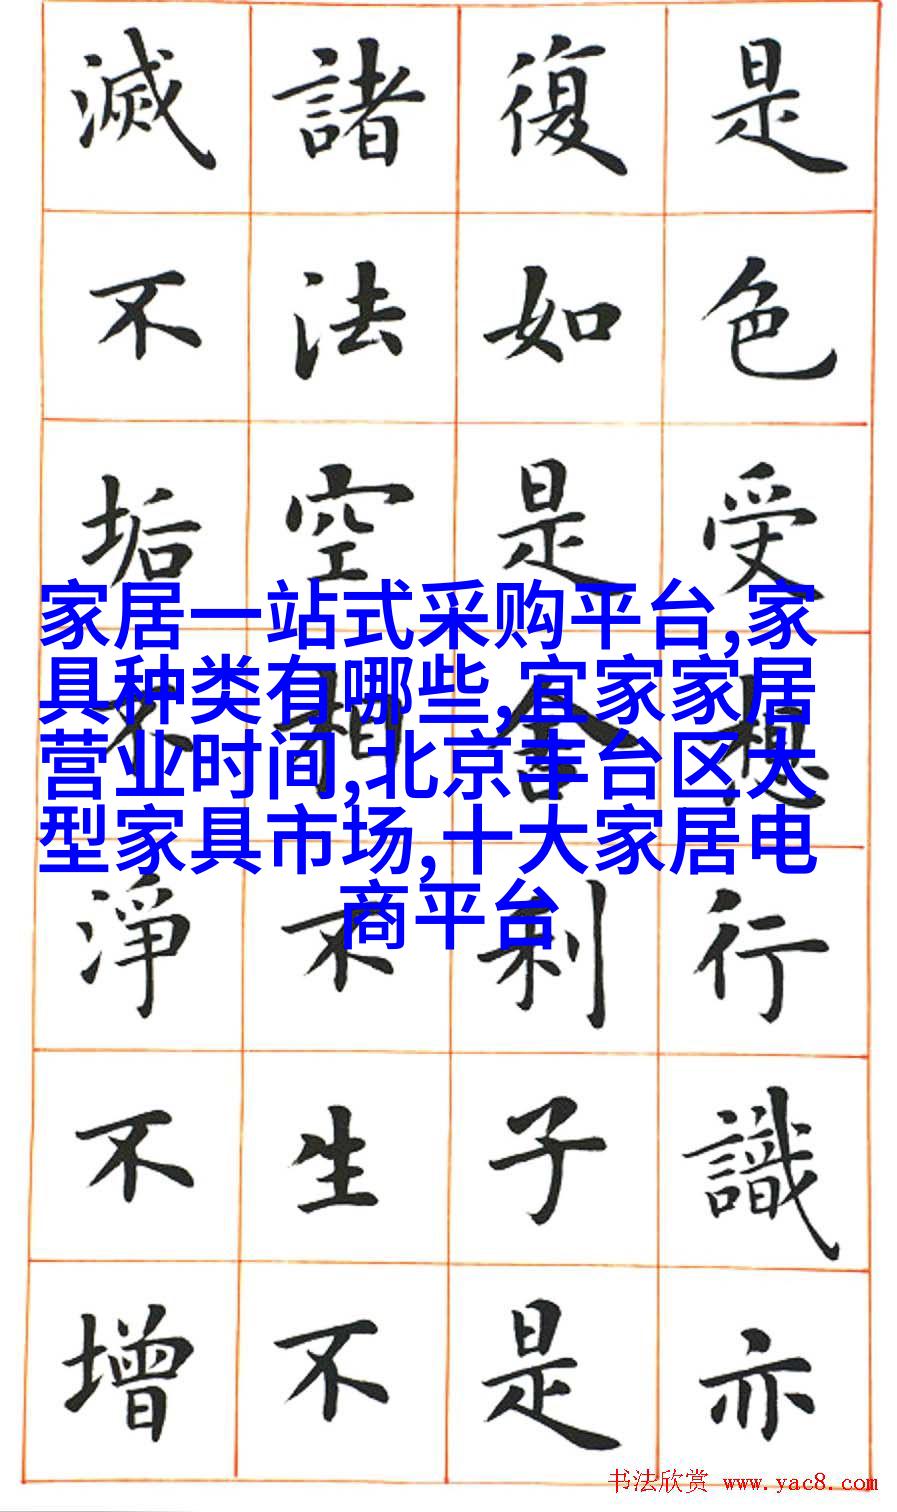 是色受想行識亦
復如是舍利子是
諸法空相不生不
滅不垢不淨不增
家居一站式采购平台,家
具种类有哪些,宜家家居
营业时间,北京丰台区大
型家具市场,十大家居电
商平台
书法欣赏 www.yac8.com